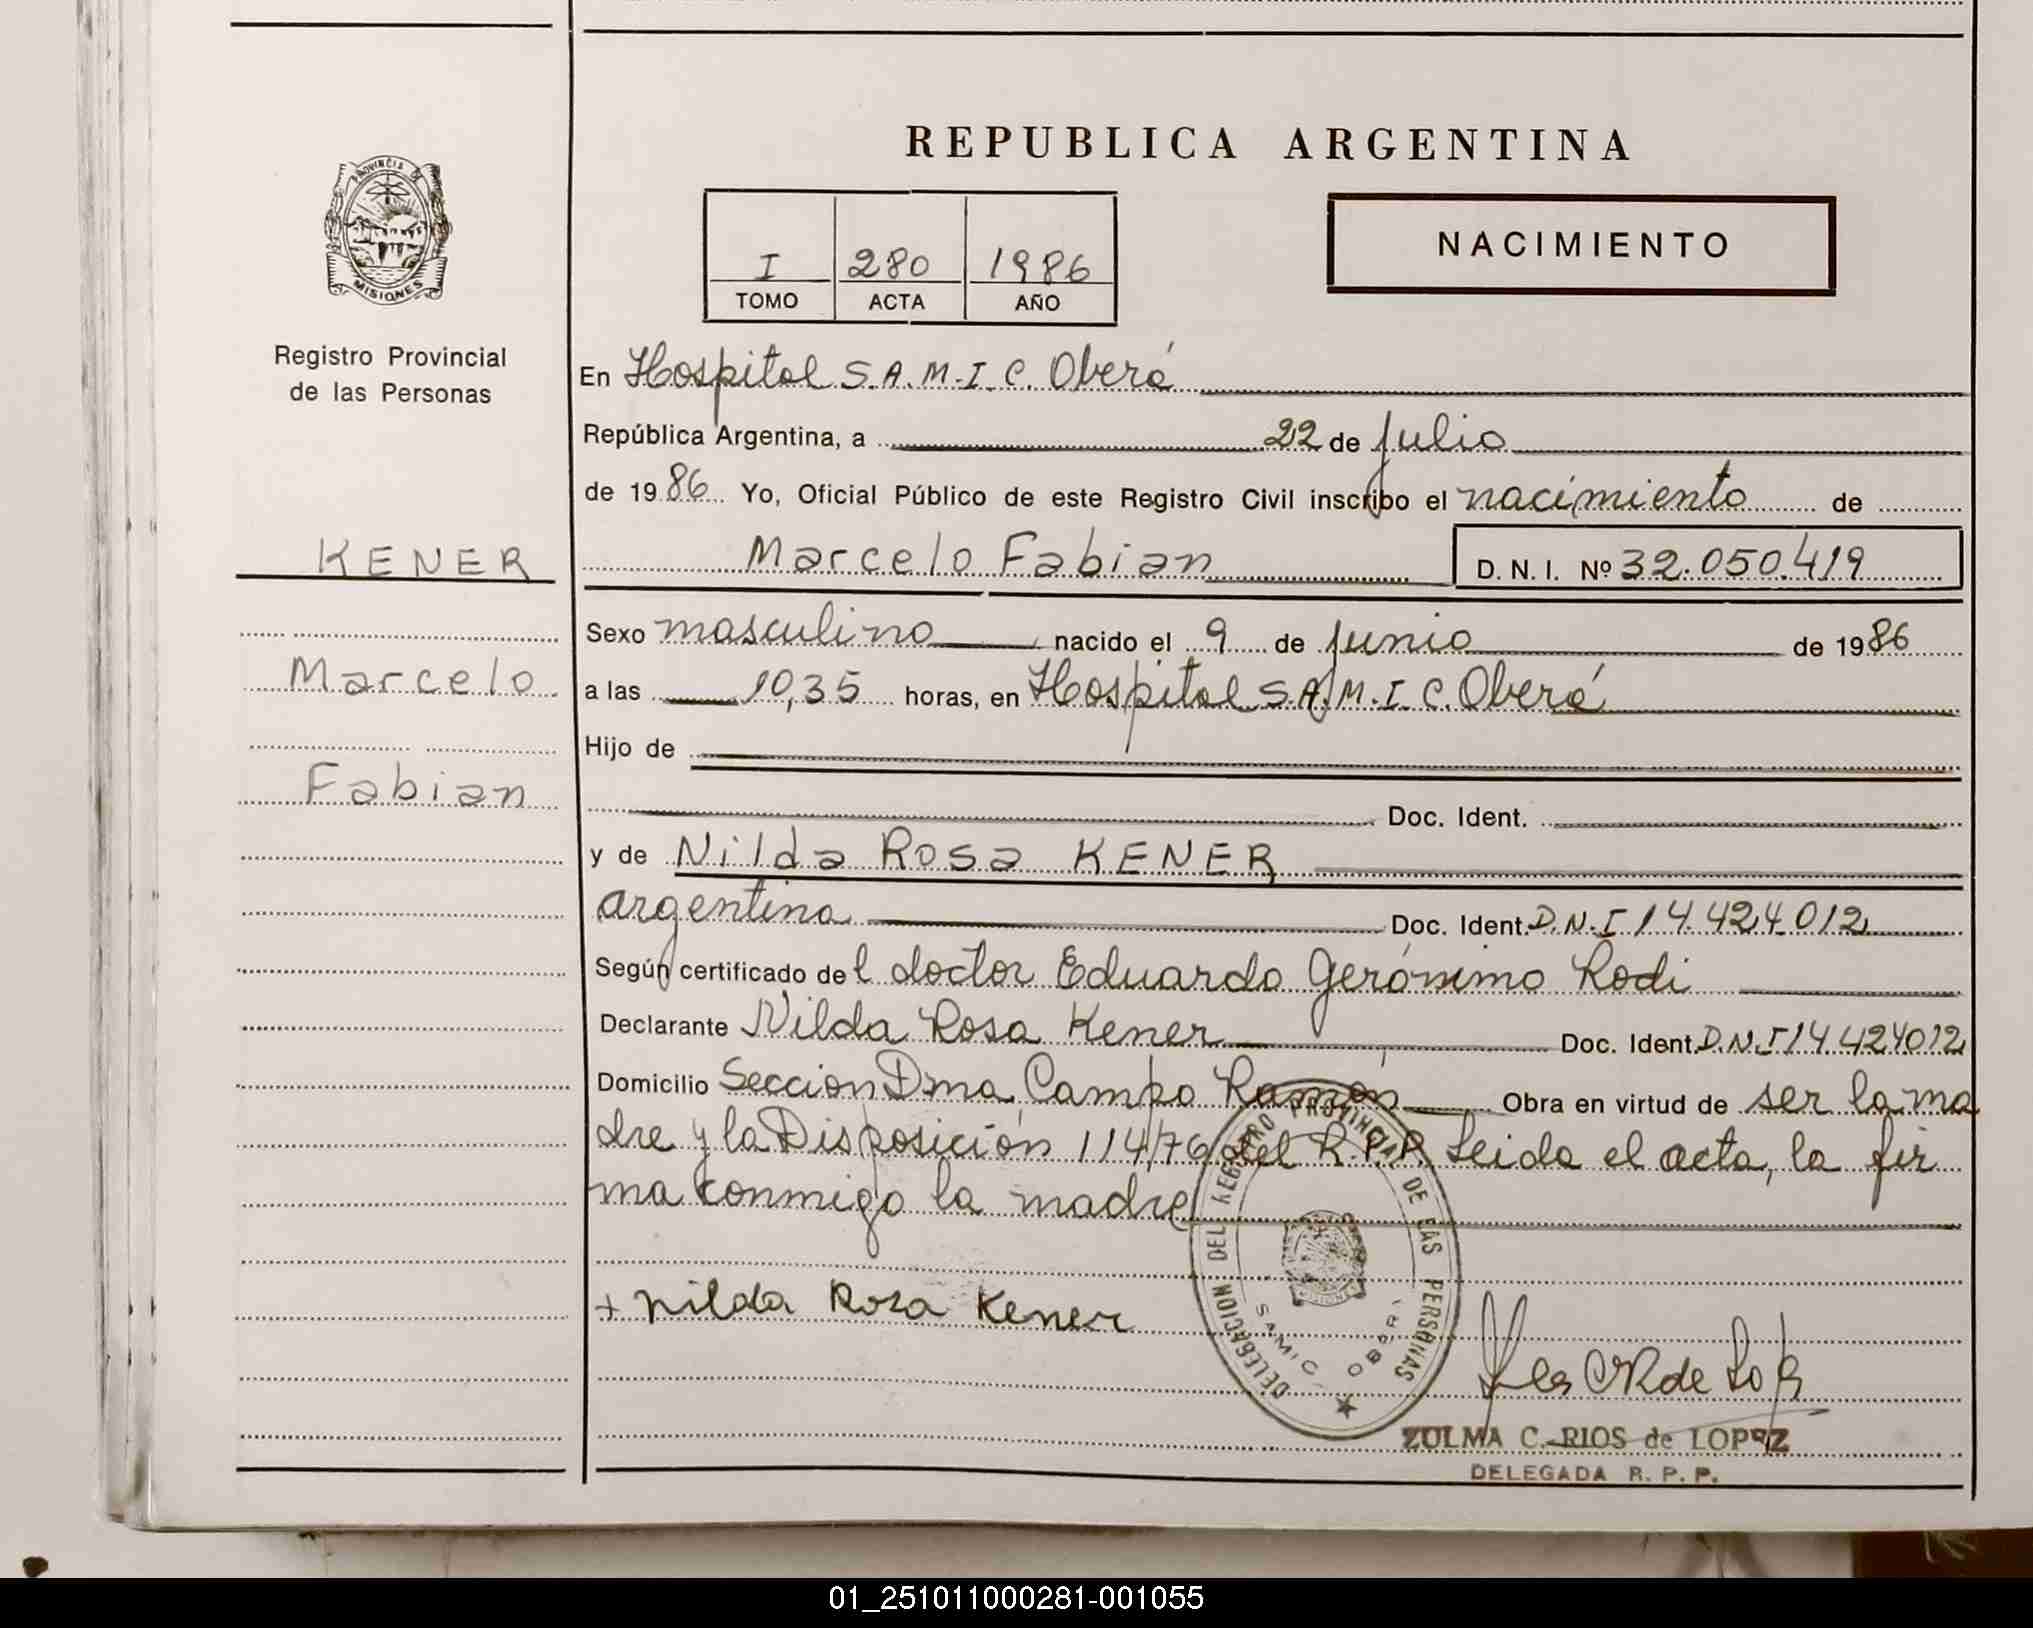 REPUBLICA ARGENTINA
PROVINCIA DE MISIONES
I 280 1986
TOMO ACTA AÑO
NACIMIENTO
Registro Provincial
de las Personas
KENER
Marcelo
Fabian
En Hospital S.A.M.I.C. Oberá
República Argentina, a 22 de julio
de 1986 Yo, Oficial Público de este Registro Civil inscribo el nacimiento de
Marcelo Fabian D. N. I. Nº 32.050.419
Sexo masculino nacido el 9 de junio de 1986
a las 10,35 horas, en Hospital S.A.M.I.C. Oberá
Hijo de
Doc. Ident.
y de Nilda Rosa KENER
argentina Doc. Ident. D.N.I 14.424.012
Según certificado del doctor Eduardo Gerónimo Rodi
Declarante Nilda Rosa Kener Doc. Ident. D.N.I 14.424012
Domicilio Seccion Dma Campo Ramón Obra en virtud de ser la ma
dre y la Disposición 114/76 del R.P.P. Leida el acta, la fir
ma conmigo la madre
+ nilda Rosa Kener
DELEGACION DEL REGISTRO PROVINCIAL DE LAS PERSONAS
SAMIC OBERA
ZULMA C. RIOS de LOPEZ
DELEGADA R. P. P.
01_251011000281-001055